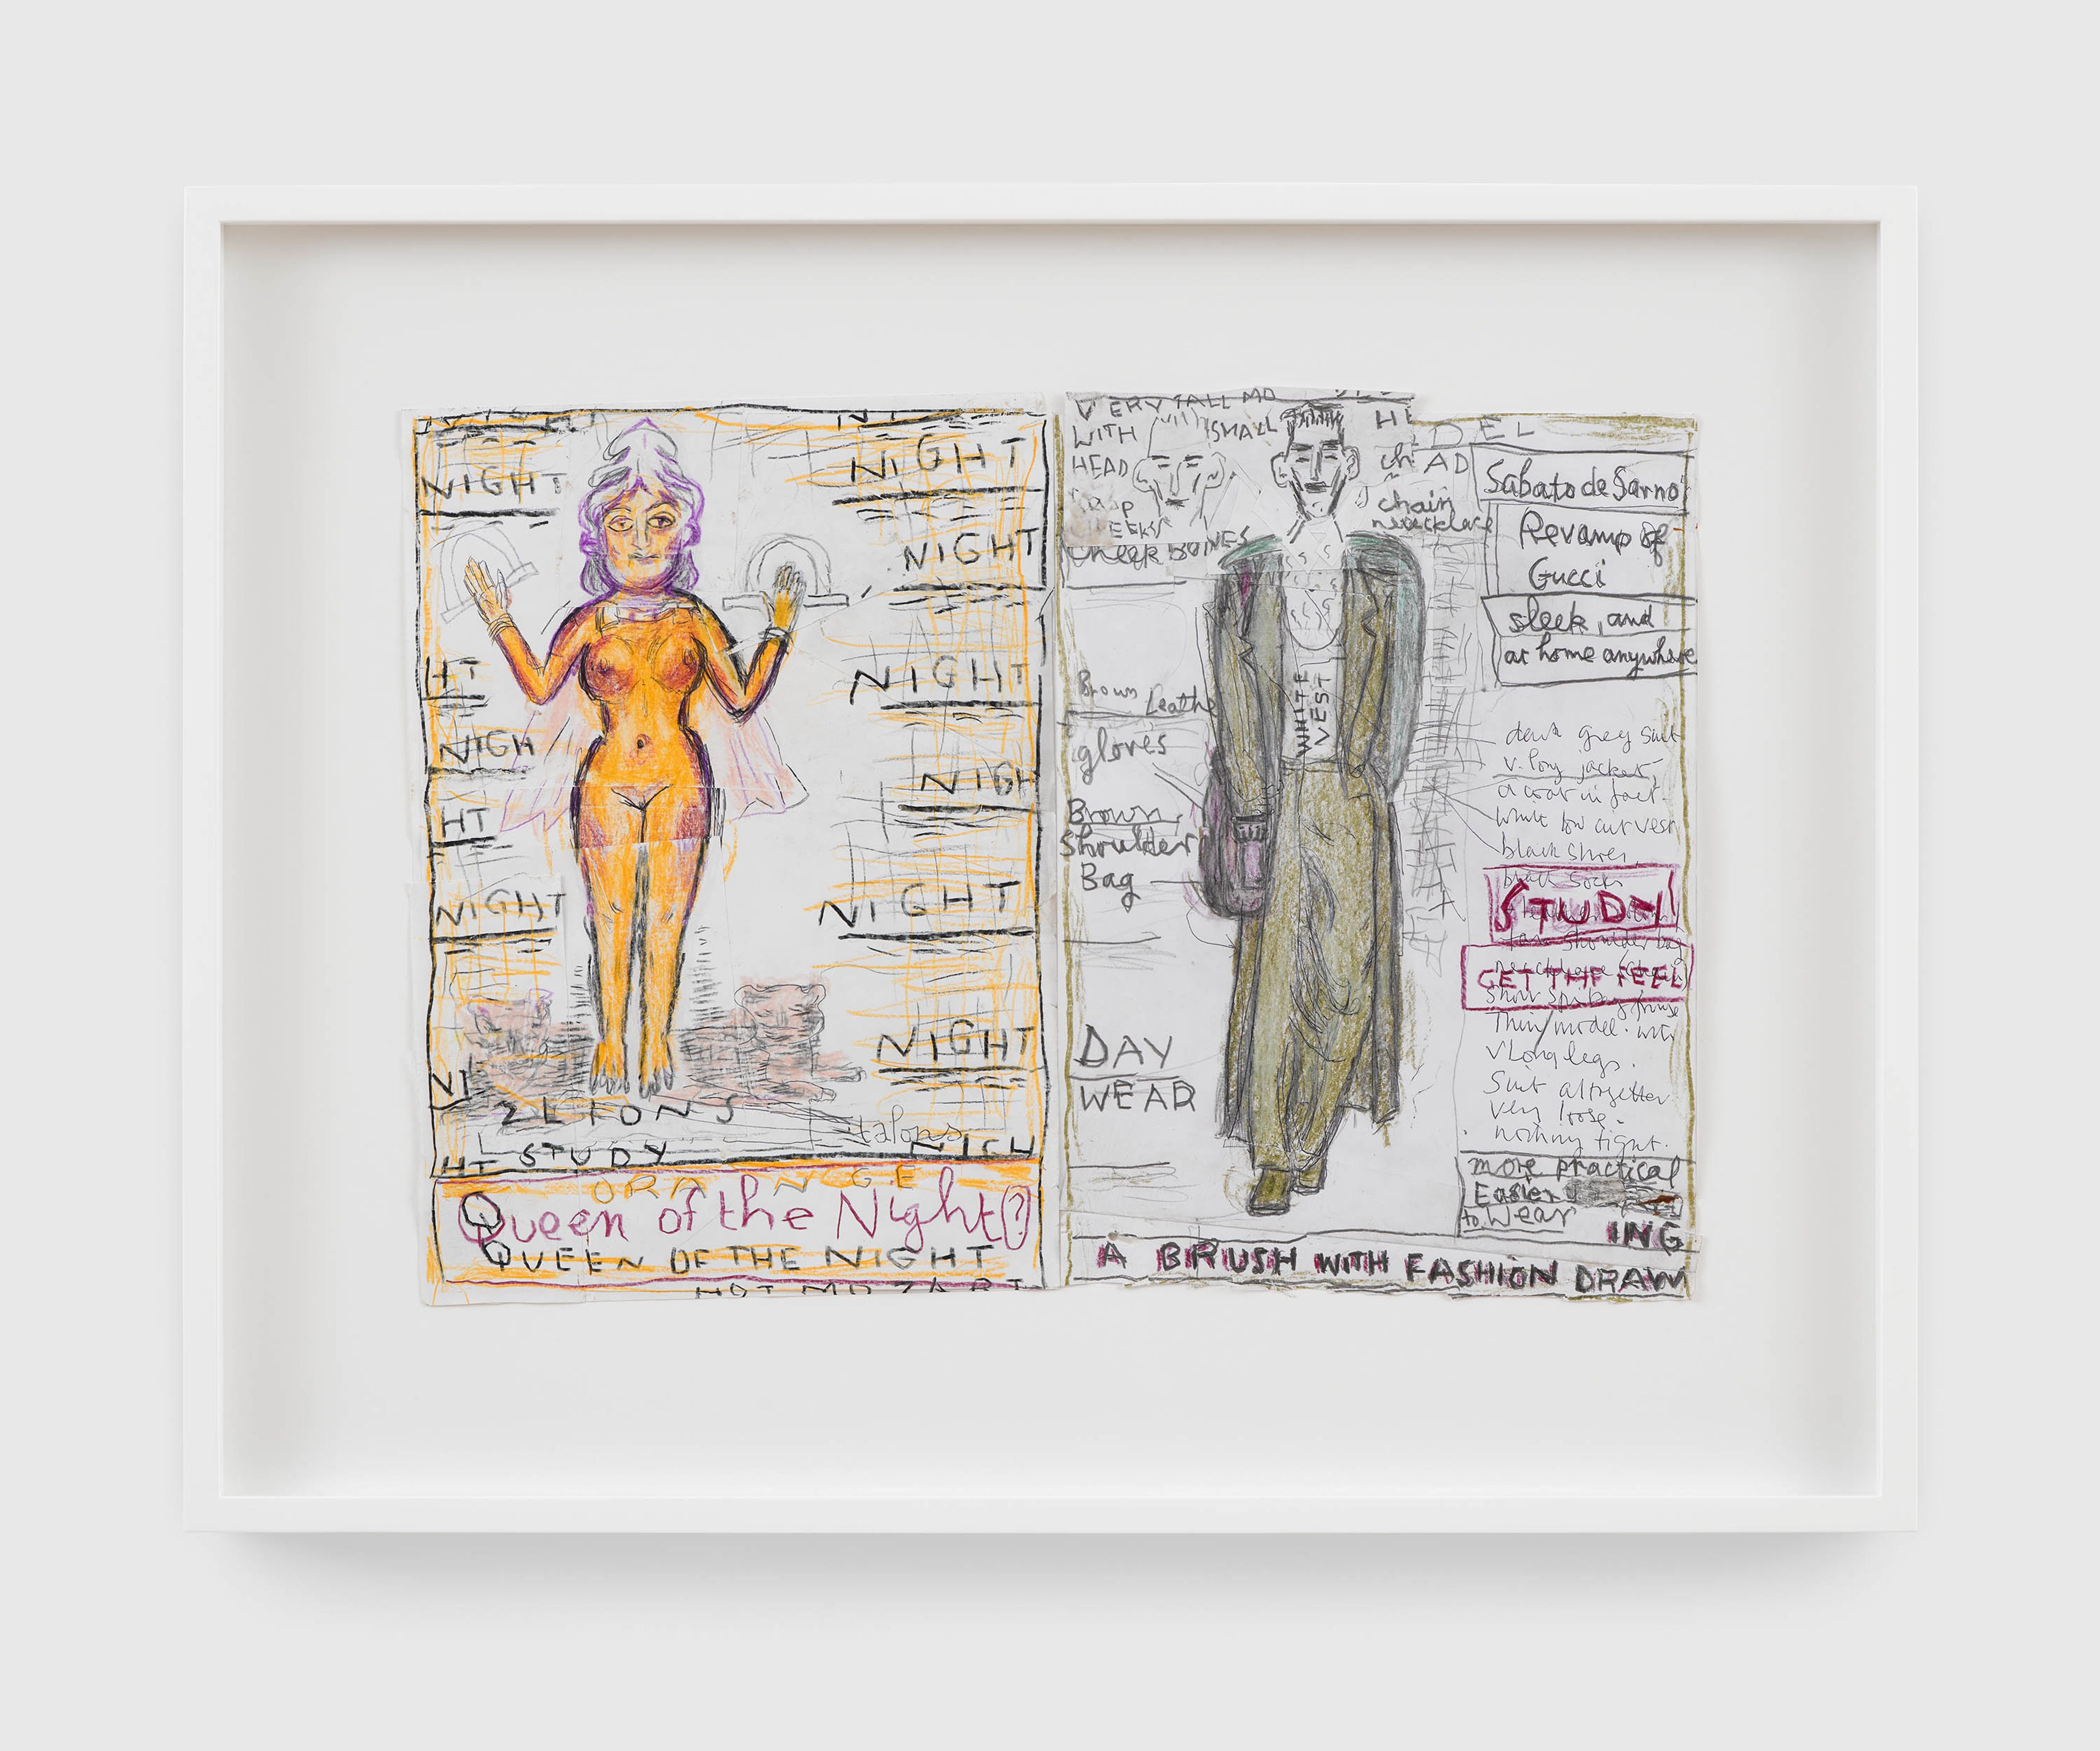 NIGHT
NIGHT
NIGHT
NIGHT
HT
NIGH
NIGH
HT
NIGHT
NIGHT
NIGHT
NI
2 LIONS
talons
HT STUDY
ORANGE
Queen of the Night?
QUEEN OF THE NIGHT
NOT MOZART
VERY TALL MO
WITH
SMALL
HEAD
CHEEKS
Cheek BONES
DEL
AD
chain
Brown Leathe
gloves
Brown
Shoulder
Bag
WHITE
VEST
DAY
WEAR
Sabato de Sarno
Revamp of
Gucci
sleek, and
at home anywhere
dark grey suit
v. long jacket,
a coat in fact.
white low cut vest
black shoes,
black socks
STUDY
tan shoulder bag
GET THE FEEL
Thin model. with
v Long legs.
Suit altogether
very loose.
nothing tight.
more practical
Easier
to Wear
ING
A BRUSH WITH FASHION DRAW